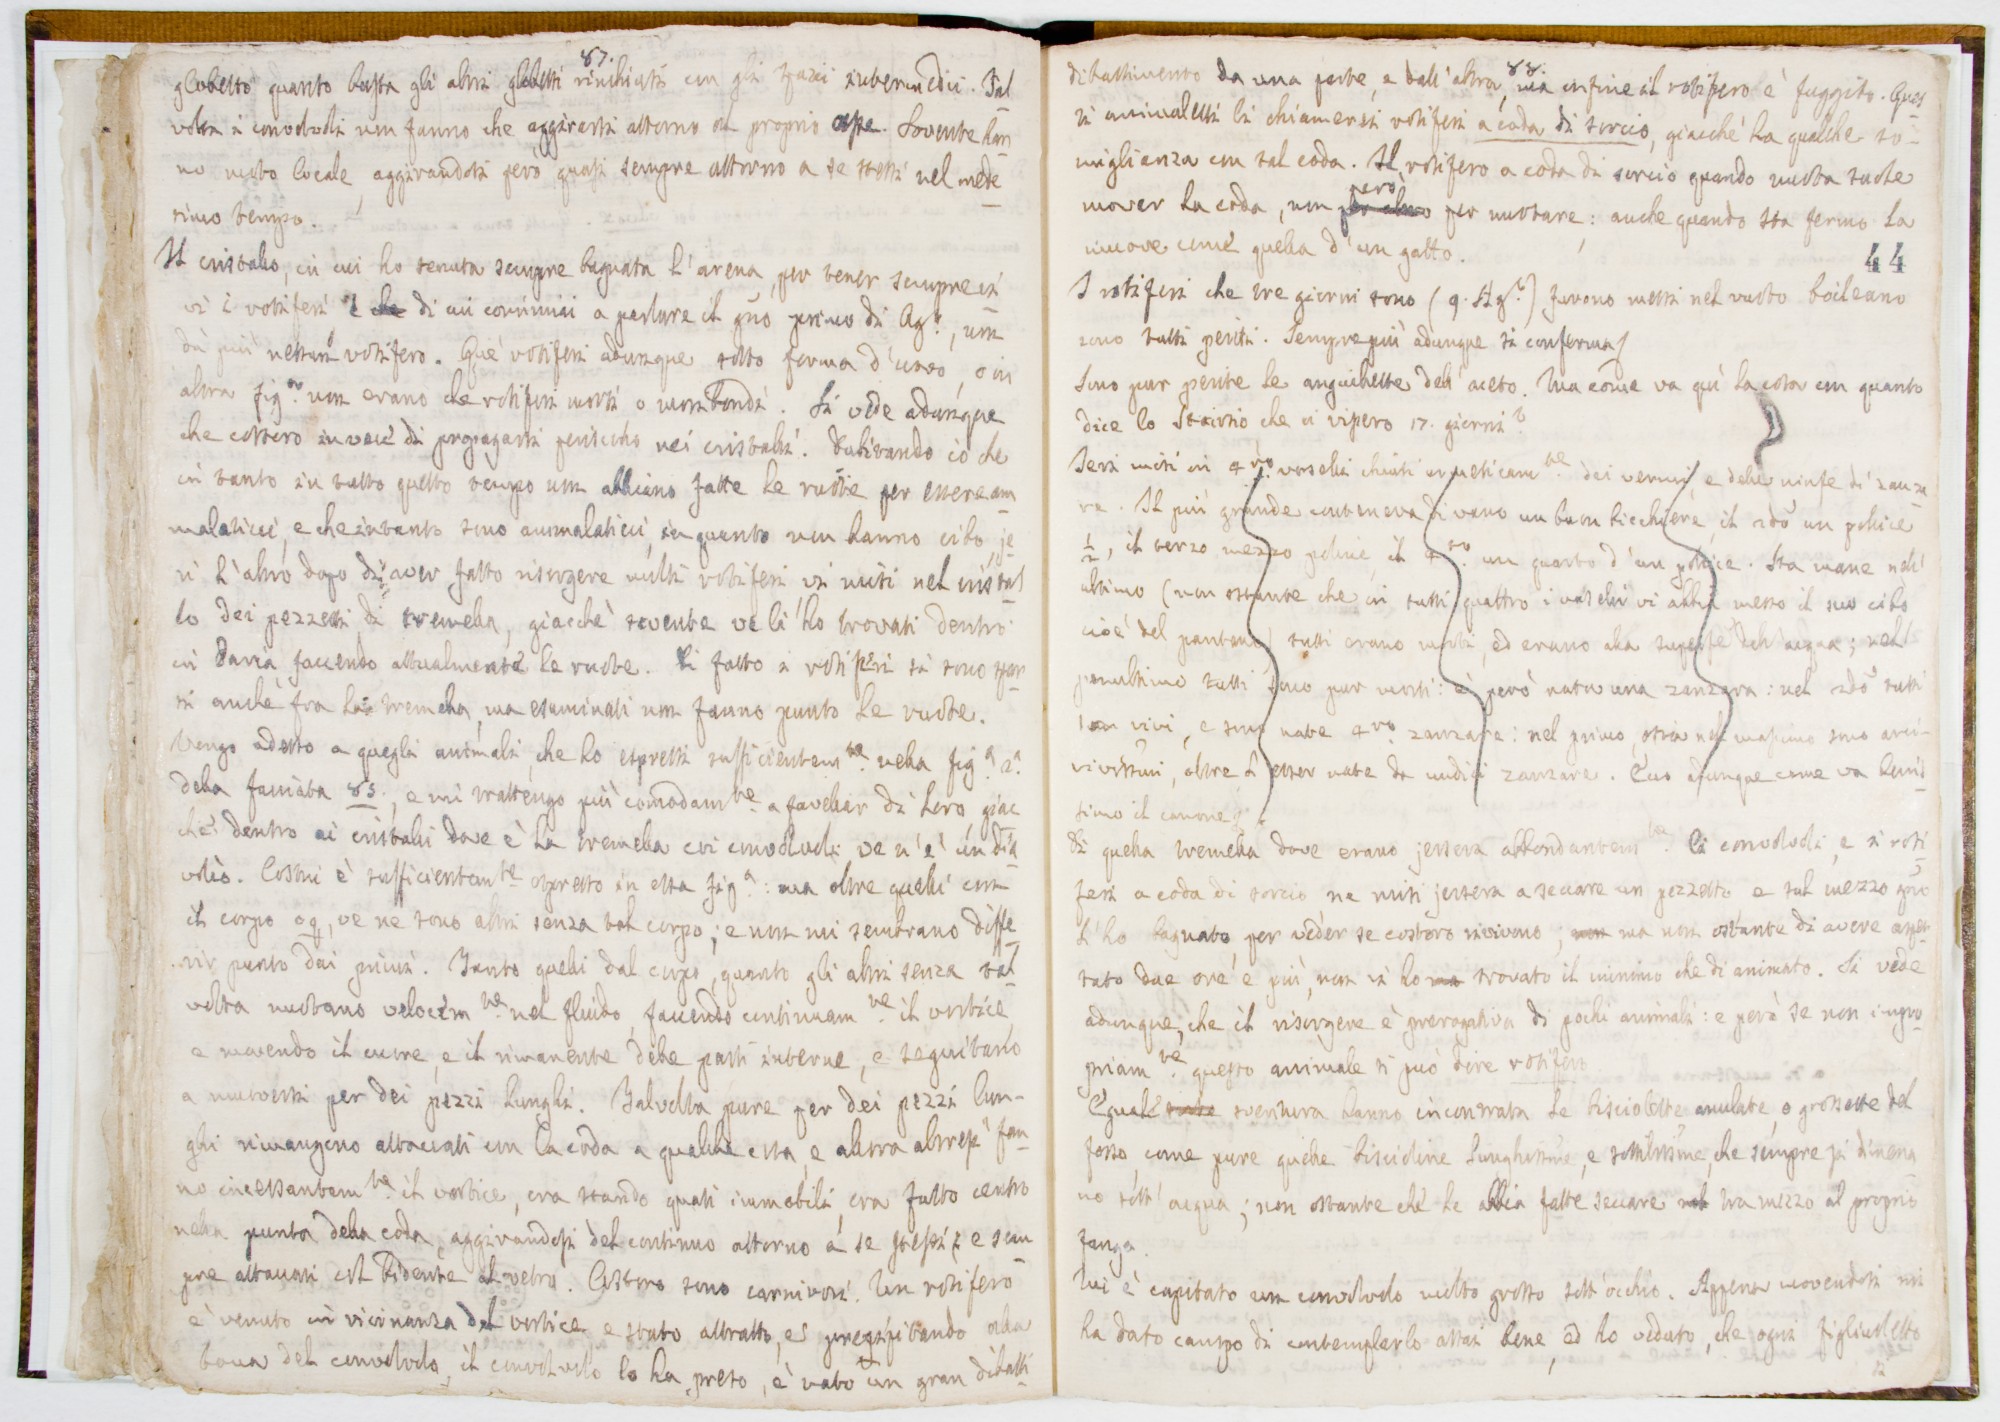 87.
globetto quanto basta gli altri globetti rinchiusi con gli spazi intermedii. Tal
volta i convolvoli non fanno che aggirarsi attorno al proprio asse. Sovente han
no moto locale, aggirandosi però quasi sempre attorno a se stessi nel mede
simo tempo.
Il cristallo, in cui ho tenuta sempre bagnata l'arena, per tener sempre in
vi i rotiferi di cui cominciai a parlare il gño primo di Ag.º, non
dà più nessun rotifero. Que' rotiferi adunque sotto forma d'uovo, o in
altra fig.ª non erano che rotiferi morti o moribondi. Si vede adunque
che costoro invece di propagarsi periscono nei cristalli. Dubitando io che
in tanto in tutto questo tempo non abbiano fatte le ruote per essere am
malaticci, e che intanto sono ammalaticci, in quanto non hanno cibo, je
ri l'altro dopo di aver fatto risorgere molti rotiferi vi misi nel cristal
lo dei pezzetti di tremella, giacchè sovente ve li ho trovati dentro
in Pavia, facendo attualmente le ruote. Di fatto i rotiferi si sono spar
si anche fra la tremella, ma esaminati non fanno punto le ruote.
Vengo adesso a quegli animali, che ho espressi sufficientem.te nella fig.ª 2.ª
della facciata 85., e mi trattengo più comodam.te a favellar di loro giac
chè dentro ai cristalli dove è la tremella coi convolvoli ve n'è un dia
volìo. Costui è sufficientem.te espresso in essa fig.ª: ma oltre quelli con
il corpo oq, ve ne sono altri senza tal corpo; e non mi sembrano diffe
rir punto dai primi. Tanto quelli dal corpo, quanto gli altri senza tal
volta nuotano velocem.te nel fluido, facendo continuam.te il vortice,
e movendo il cuore, e il rimanente delle parti interne, e seguitano
a muoversi per dei pezzi lunghi. Talvolta pure per dei pezzi lun-
ghi rimangono attaccati con la coda a qualche cosa, e allora altresì fan
no incessantem.te il vortice, ora stando quasi immobili, ora fatto centro
nella punta della coda, aggirandosi del continuo attorno a se stessi, e sem
pre attaccati col bidente al vetro. Costoro sono carnivori. Un rotifero
è venuto in vicinanza del vortice e stato attratto, e precipitando alla
bocca del convolvolo, il convolvolo lo ha preso, è nato un gran dibatti
88.
dibattimento da una parte, e dall'altra, ma infine il rotifero è fuggito. Ques
ti animaletti li chiamersi rotiferi a coda di sorcio, giacchè ha qualche so-
miglianza con tal coda. Il rotifero a coda di sorcio quando nuota suole
mover la coda, non però per nuotare: anche quando sta fermo la
muove come quella d'un gatto.
44
I rotiferi che tre giorni sono (9. Ag.º) furono messi nel vuoto boileano
sono tutti periti. Sempre più adunque si conferma
Sono pur perite le anguillette dell'aceto. Ma come va quì la cosa con quanto
dice lo che ci vissero 17. giorni?
Jeri misi in 4.ro vaselli chiusi ermeticam.te dei vermi, e delle ninfe di zanza
re. Il più grande conteneva di vano un buon bicchiere, il 2dõ un police
½, il terzo mezzo police, il 4.to un quarto d'un police. Sta mane nell'
ultimo (non ostante che in tutti quattro i vaselli vi abbia messo il suo cibo
cioè del pantano) tutti erano morti, ed erano alla superfe dell'acqua; nel
penultimo tutti sono pur morti: è però nata una zanzara: nel 2dõ tutti
son vivi, e sono nate 4.ro zanzare: nel primo, ossia nel massimo sono arci-
vivissimi, oltre l'esser nate da undici zanzare. Ecco adunque come va benis
simo il canone
Di quella tremella dove erano jersera abbondantem.te li convolvoli, e i roti
feri a coda di sorcio ne misi jersera a seccare un pezzetto e sul mezzo gño
l'ho bagnato per veder se costoro rivivono; ma non ostante di avere aspet
tato due ore e più, non vi ho trovato il minimo che di animato. Si vede
adunque, che il risorgere è prerogativa di pochi animali: e però se non impro
priam.te questo animale si può dire rotifero
Egual sventura hanno incontrata le bisciolette anulate, e grossette del
fosso, come pure quelle biscioline lunghissime, e sottilissime, che sempre si dimena
no sott'acqua; non ostante che le abbia fatte seccare tra mezzo al proprio
fango.
Mi è capitato un convolvolo molto grosso sott'occhio. Appena movendosi mi
ha dato campo di contemplarlo assai bene, ed ho veduto, che ogni figliuoletto